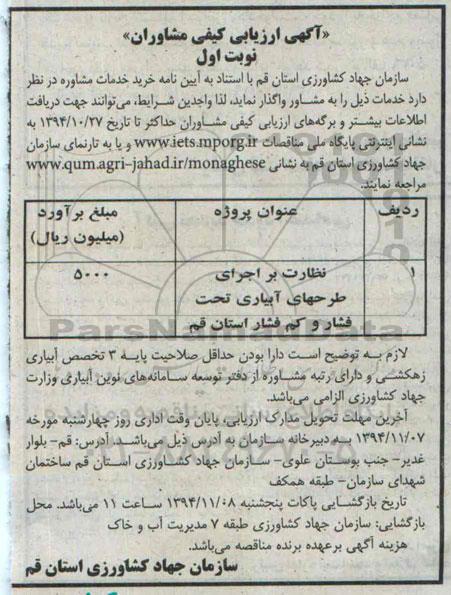 «آگهی ارزیابی کیفی مشاوران»
نوبت اول
سازمان جهاد کشاورزی استان قم با استناد به آیین نامه خرید خدمات مشاوره در نظر
دارد خدمات ذیل را به مشاور واگذار نماید، لذا واجدین شرایط، می‌توانند جهت دریافت
اطلاعات بیشتر و برگه‌های ارزیابی کیفی مشاوران حداکثر تا تاریخ ۱۳۹۴/۱۰/۲۷ به
نشانی اینترنتی پایگاه ملی مناقصات www.iets.mporg.ir و یا به تارنمای سازمان
جهاد کشاورزی استان قم به نشانی www.qum.agri-jahad.ir/monaghese
مراجعه نمایند.
ردیف عنوان پروژه مبلغ برآورد
(میلیون ریال)
۱ نظارت بر اجرای ۵۰۰۰
طرحهای آبیاری تحت
فشار و کم فشار استان قم
لازم به توضیح است دارا بودن حداقل صلاحیت پایه ۳ تخصص آبیاری
زهکشی و دارای رتبه مشاوره از دفتر توسعه سامانه‌های نوین آبیاری وزارت
جهاد کشاورزی الزامی می‌باشد.
آخرین مهلت تحویل مدارک ارزیابی، پایان وقت اداری روز چهارشنبه مورخه
۱۳۹۴/۱۱/۰۷ به دبیرخانه سازمان به آدرس ذیل می‌باشد. آدرس: قم- بلوار
غدیر- جنب بوستان علوی- سازمان جهاد کشاورزی استان قم ساختمان
شهدای سازمان- طبقه همکف
تاریخ بازگشایی پاکات پنجشنبه ۱۳۹۴/۱۱/۰۸ ساعت ۱۱ می‌باشد. محل
بازگشایی: سازمان جهاد کشاورزی طبقه ۷ مدیریت آب و خاک
هزینه آگهی برعهده برنده مناقصه می‌باشد.
سازمان جهاد کشاورزی استان قم
ParsNamadData